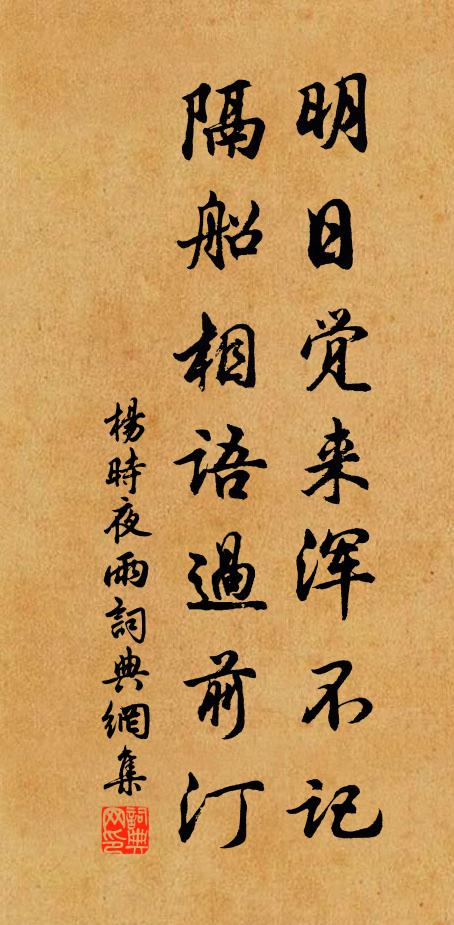 明日觉来浑不记
隔船相语过前汀
楊時夜雨詞典網集
詞典网印